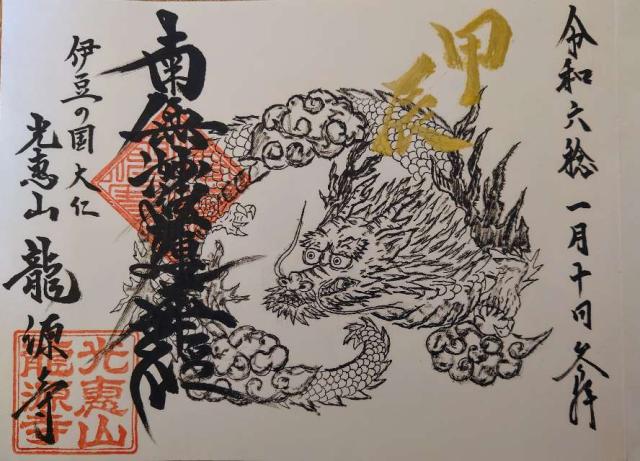 令和六稔一月十日参拝
甲辰
南無妙法蓮華経
伊豆の国大仁
光恵山
龍源寺
光恵山
龍源寺